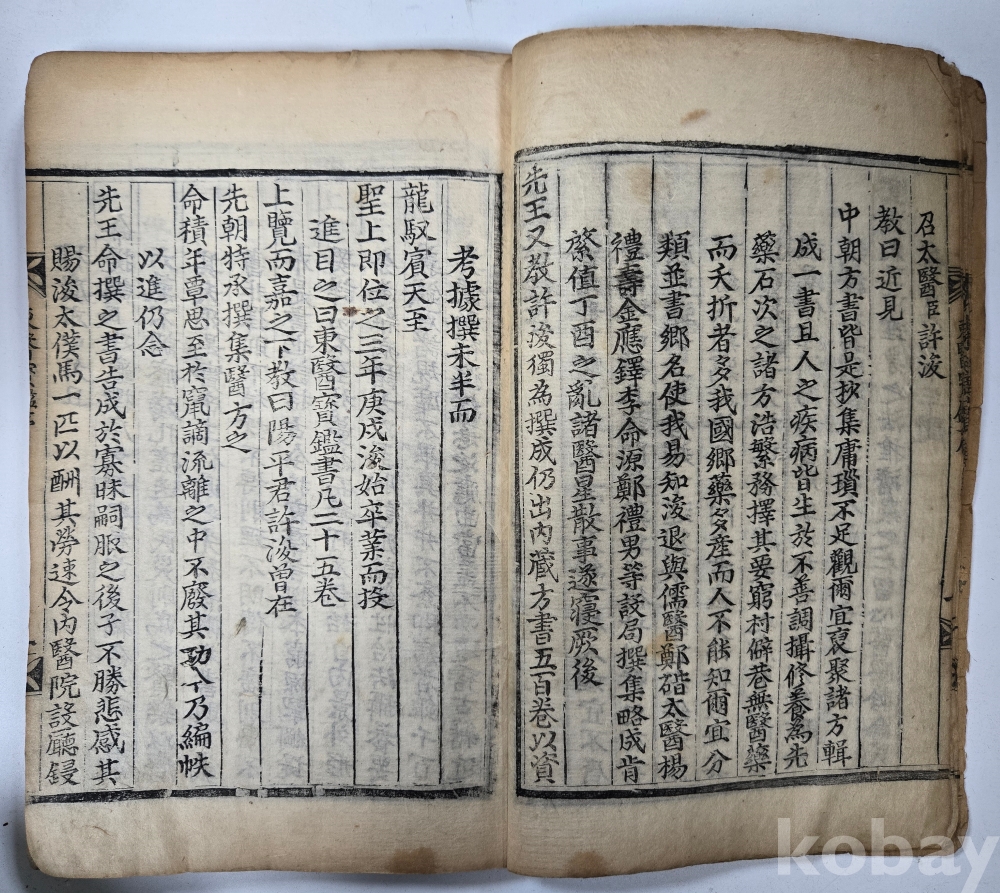 召太醫臣許浚
教曰近見
中朝方書皆是抄集庸瑣不足觀爾宜裒聚諸方輯
成一書且人之疾病皆生於不善調攝修養為先
藥石次之諸方浩繁務擇其要窮村僻巷無醫藥
而夭折者多我國鄉藥多產而人不能知爾宜分
類並書鄉名使民易知浚退與儒醫鄭碏太醫楊
禮壽金應鐸李命源鄭禮男等設局撰集略成肯
綮值丁酉之亂諸醫星散事遂寢厥後
先王又教許浚獨為撰成仍出內藏方書五百卷以資
考據撰未半而
龍馭賓天至
聖上即位之三年庚戌浚始卒業而投
進目之曰東醫寶鑑書凡二十五卷
上覽而嘉之下教曰陽平君許浚曾在
先朝特承撰集醫方之
命積年覃思至於竄謫流離之中不廢其功今乃編帙
以進仍念
先王命撰之書告成於寡昧嗣服之後予不勝悲感其
賜浚太僕馬一匹以酬其勞速令內醫院設廳鋟
kobay